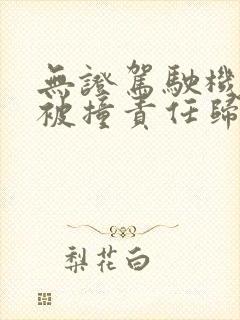 無證駕駛機
被撞責任歸
梨花白